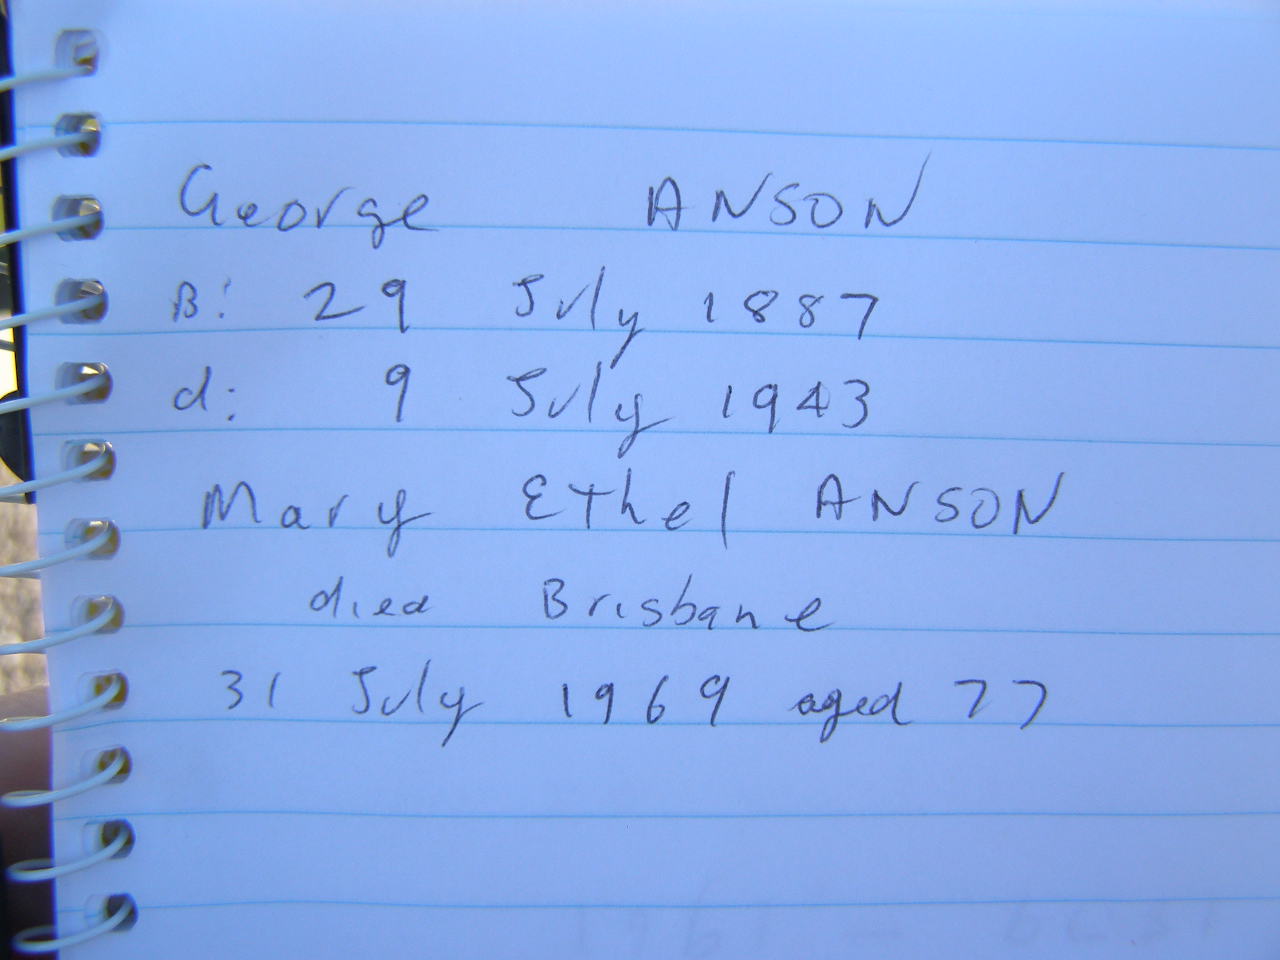 George ANSON
B: 29 July 1887
d: 9 July 1943
Mary Ethel ANSON
died Brisbane
31 July 1969 aged 77